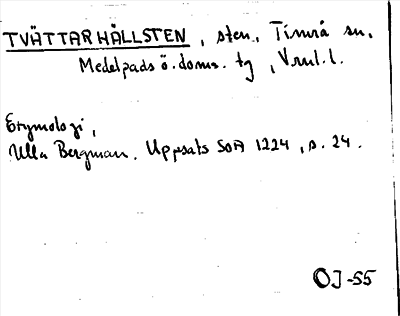 TVÄTTARHÄLLSTEN, sten., Timrå sn,
Medelpads ö. doms. tg, Vnl. l.
Etymologi,
Ulla Bergman. Uppsats SOA 1224, s. 24.
OJ-55